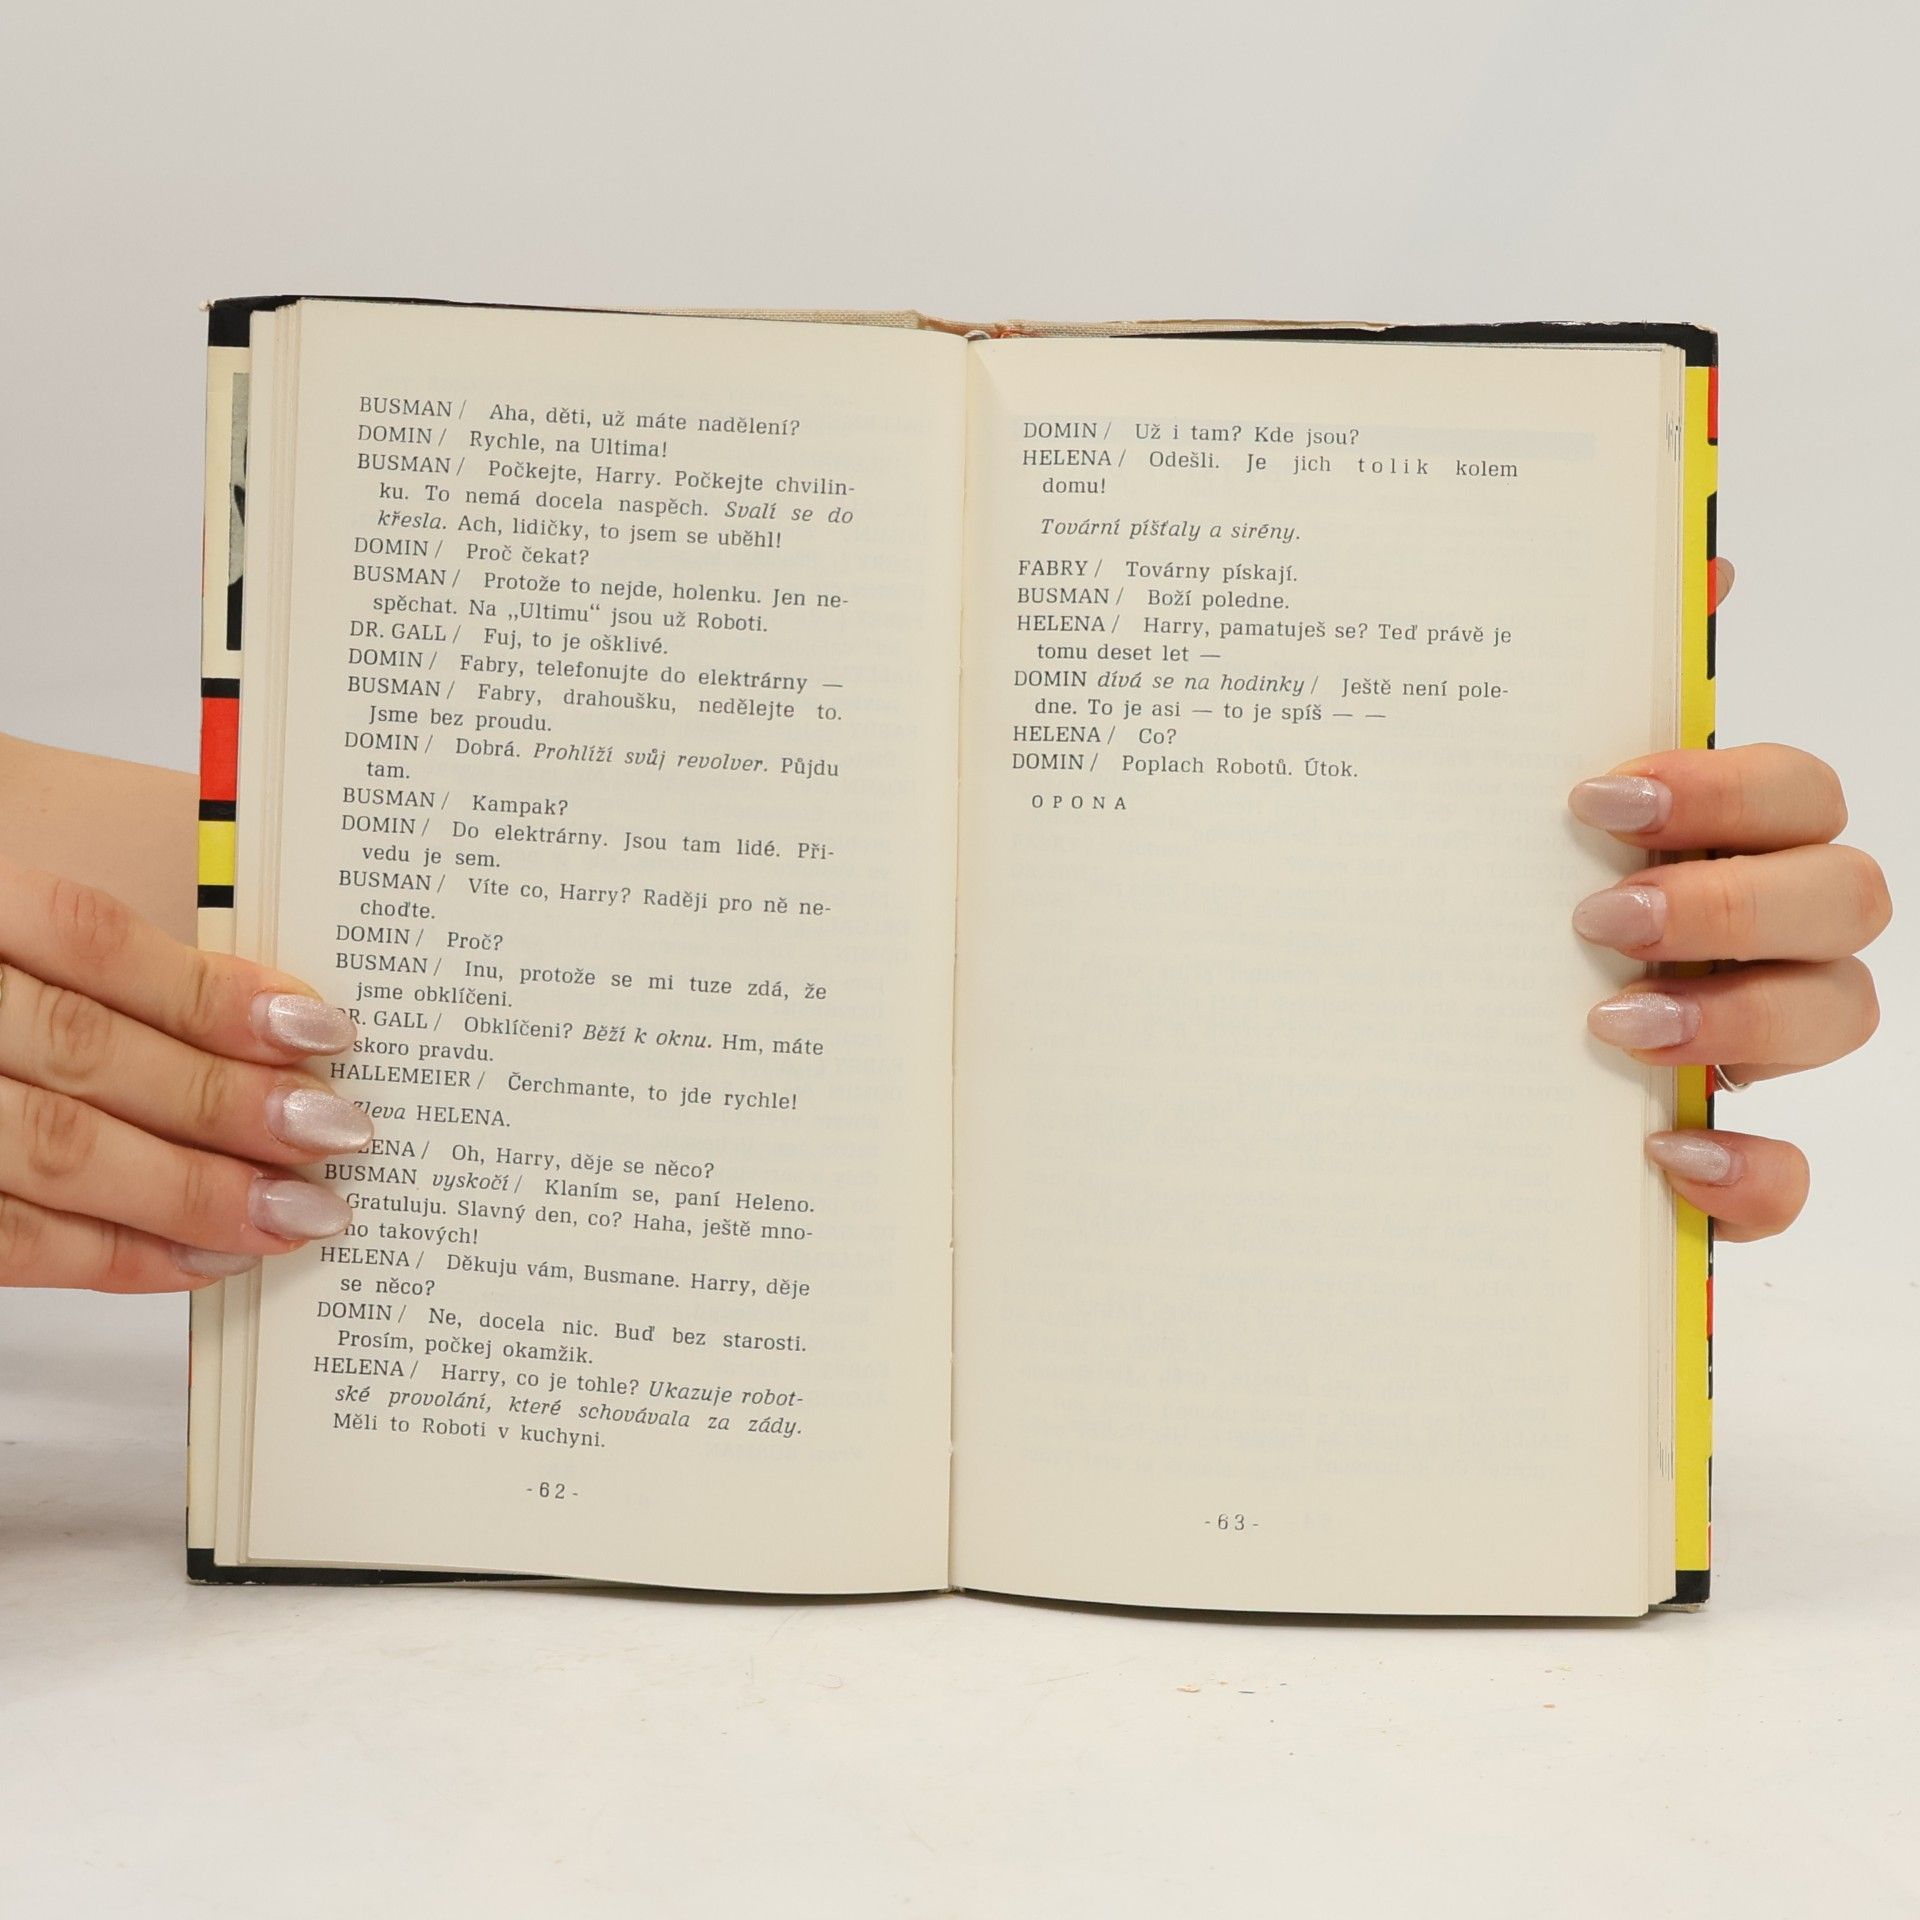 BUSMAN / Aha, děti, už máte nadělení?
DOMIN / Rychle, na Ultima!
BUSMAN / Počkejte, Harry. Počkejte chvilin-
ku. To nemá docela naspěch. Svalí se do
křesla. Ach, lidičky, to jsem se uběhl!
DOMIN / Proč čekat?
BUSMAN / Protože to nejde, holenku. Jen ne-
spěchat. Na „Ultimu“ jsou už Roboti.
DR. GALL / Fuj, to je ošklivé.
DOMIN / Fabry, telefonujte do elektrárny —
BUSMAN / Fabry, drahoušku, nedělejte to.
Jsme bez proudu.
DOMIN / Dobrá. Prohlíží svůj revolver. Půjdu
tam.
BUSMAN / Kampak?
DOMIN / Do elektrárny. Jsou tam lidé. Při-
vedu je sem.
BUSMAN / Víte co, Harry? Raději pro ně ne-
choďte.
DOMIN / Proč?
BUSMAN / Inu, protože se mi tuze zdá, že
jsme obklíčeni.
DR. GALL / Obklíčeni? Běží k oknu. Hm, máte
skoro pravdu.
HALLEMEIER / Čerchmante, to jde rychle!
Zleva HELENA.
HELENA / Oh, Harry, děje se něco?
BUSMAN vyskočí / Klaním se, paní Heleno.
Gratuluju. Slavný den, co? Haha, ještě mno-
ho takových!
HELENA / Děkuju vám, Busmane. Harry, děje
se něco?
DOMIN / Ne, docela nic. Buď bez starosti.
Prosím, počkej okamžik.
HELENA / Harry, co je tohle? Ukazuje robot-
ské provolání, které schovávala za zády.
Měli to Roboti v kuchyni.
- 62 -
DOMIN / Už i tam? Kde jsou?
HELENA / Odešli. Je jich tolik kolem
domu!
Tovární píšťaly a sirény.
FABRY / Továrny pískají.
BUSMAN / Boží poledne.
HELENA / Harry, pamatuješ se? Teď právě je
tomu deset let —
DOMIN dívá se na hodinky / Ještě není pole-
dne. To je asi — to je spíš — —
HELENA / Co?
DOMIN / Poplach Robotů. Útok.
OPONA
- 63 -